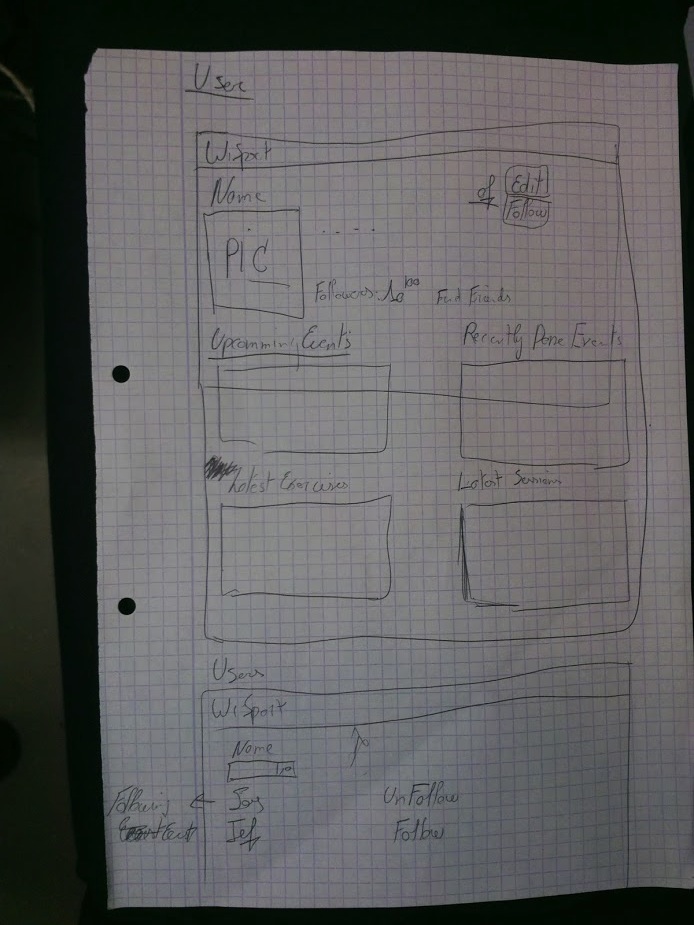 User
WiSport
Name
of Edit
Follow
PIC
. . . .
Followers: 10 Find Friends
Upcomming Events Recently Done Events
Latest Exercises Latest Sessions
Users
WiSport
Name
Following ← Joy UnFollow
Jef Follow